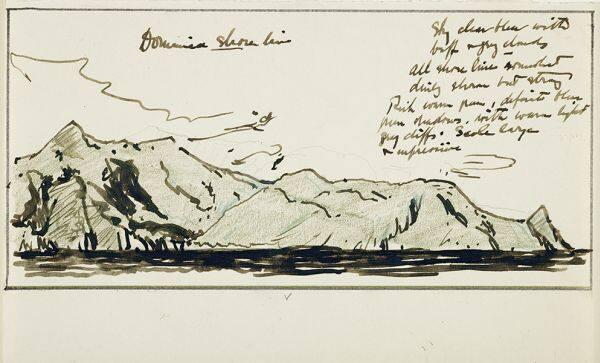 Dominica shore line
Sky clear blue with
buff & grey clouds
All shore lines somewhat
but strong
Rich warm, definite blue
green shadows, with warm light
grey cliffs. Scale large
& impressive